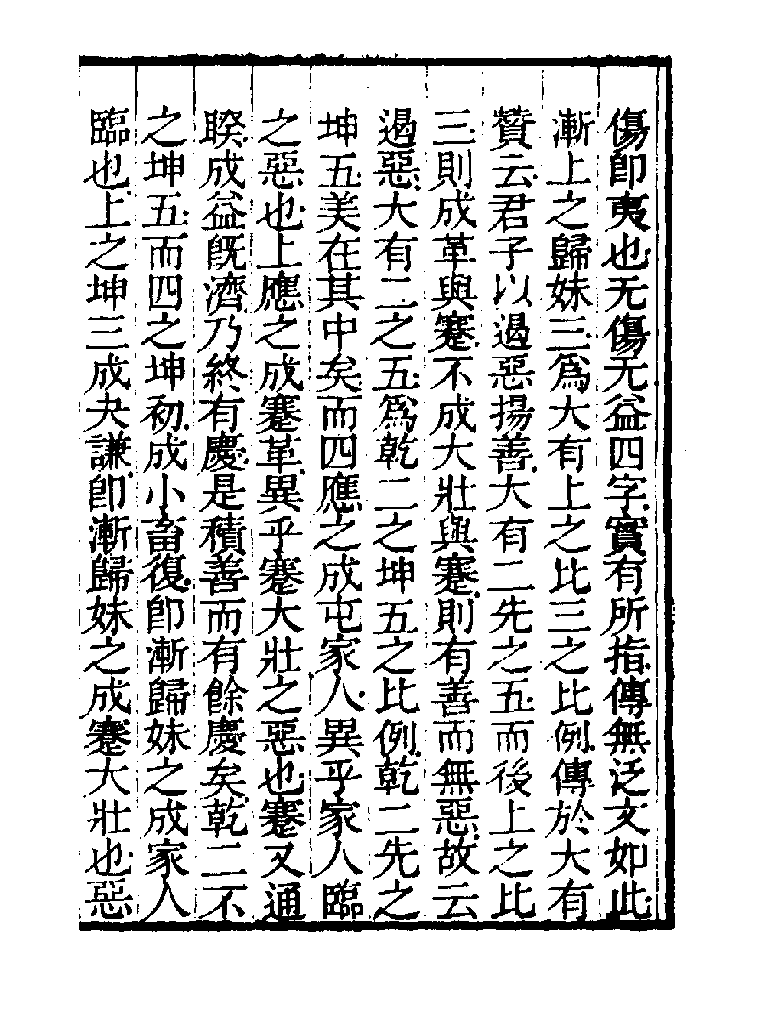 傷卽夷也无傷无益四字實有所指傳無泛文如此
漸上之歸妹三爲大有上之比三之比例傳於大有
贊云君子以遏惡揚善大有二先之五而後上之比
三則成革與蹇不成大壯與蹇則有善而無惡故云
遏惡大有二之五爲乾二之坤五之比例乾二先之
坤五美在其中矣而四應之成屯家人異乎家人臨
之惡也上應之成蹇革異乎蹇大壯之惡也蹇又通
睽成益旣濟乃終有慶是積善而有餘慶矣乾二不
之坤五而四之坤初成小畜復卽漸歸妹之成家人
臨也上之坤三成夬謙卽漸歸妹之成蹇大壯也惡